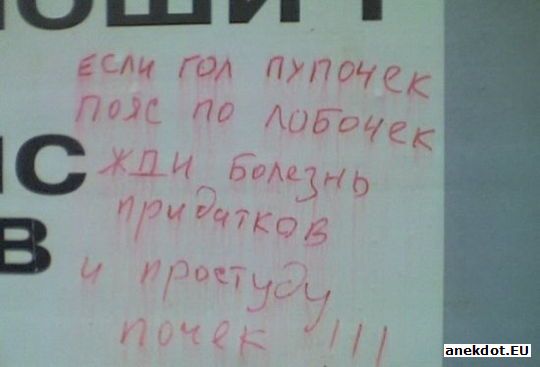 ЕСЛИ ГОЛ ПУПОЧЕК
ПОЯС ПО ЛОБОЧЕК
ЖДИ БОЛЕЗНЬ
ПРИДАТКОВ
И ПРОСТУДУ
ПОЧЕК !!!
ИС
В
anekdot.EU